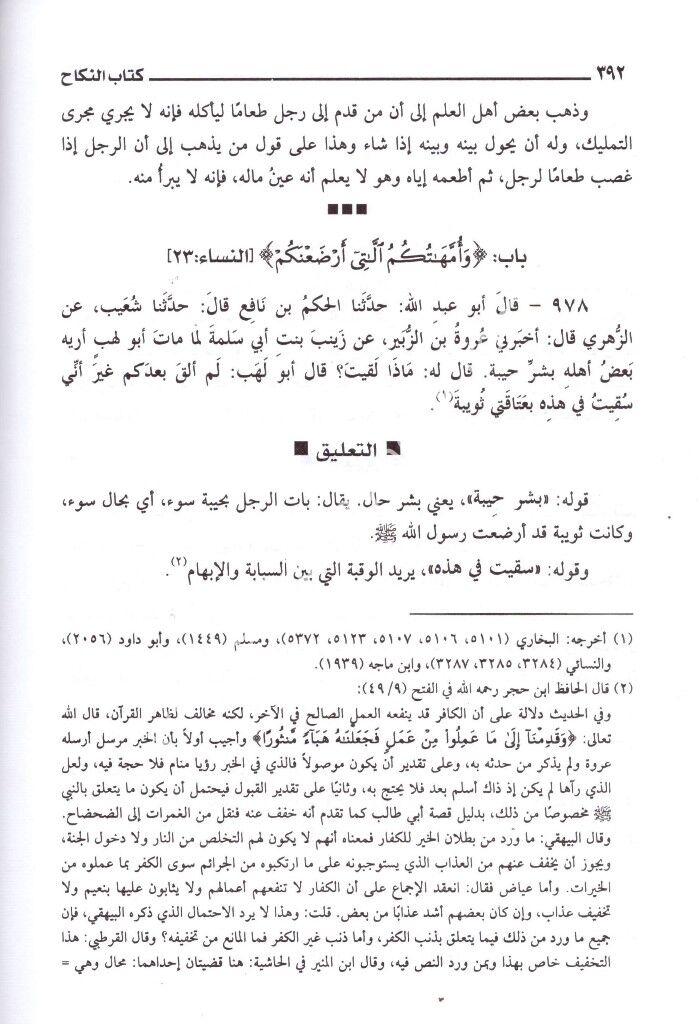 ٣٩٢ كتاب النكاح
وذهب بعض أهل العلم إلى أن من قدم إلى رجل طعامًا ليأكله فإنه لا يجري مجرى
التمليك، وله أن يحول بينه وبينه إذا شاء وهذا على قول من يذهب إلى أن الرجل إذا
غصب طعامًا لرجل، ثم أطعمه إياه وهو لا يعلم أنه عينُ ماله، فإنه لا يبرأ منه.
باب: ﴿وَأُمَّهَٰتُكُمُ ٱلَّٰتِىٓ أَرْضَعْنَكُمْ﴾ [النساء:٢٣]
٩٧٨ – قالَ أبو عبدِ الله: حدَّثَنا الحكمُ بن نَافِع قالَ: حدَّثَنا شُعَيب، عن
الزُّهري قال: أخبَرني عُروةُ بن الزُّبَير، عن زَينِبَ بنتِ أبي سَلمةَ لمَّا ماتَ أبو لهبٍ أريه
بَعضُ أهله بشرِّ حيبة. قال له: مَاذَا لَقيتَ؟ قال أبو لَهَب: لَم ألقَ بعدَكم غيرَ أنِّي
سُقِيتُ في هذِه بعَتَاقَتي ثُويبةَ(١).
التعليق
قوله: «بشر حِيبة»، يعني بشر حال. يقال: بات الرجل بحيبة سوء، أي بحال سوء،
وكانت ثويبة قد أرضعت رسول الله ﷺ.
وقوله: «سقيت في هذه»، يريد الوقبة التي بين السبابة والإبهام(٢).
(١) أخرجه: البخاري (٥١٠١، ٥١٠٦، ٥١٠٧، ٥١٢٣، ٥٣٧٢)، ومسلم (١٤٤٩)، وأبو داود (٢٠٥٦)،
والنسائي (٣٢٨٤، ٣٢٨٥، ٣٢٨٧)، وابن ماجه (١٩٣٩).
(٢) قال الحافظ ابن حجر رحمه الله في الفتح (٤٩/٩):
وفي الحديث دلالة على أن الكافر قد ينفعه العمل الصالح في الآخر، لكنه مخالف لظاهر القرآن، قال الله
تعالى: ﴿وَقَدِمْنَآ إِلَىٰ مَا عَمِلُوا۟ مِنْ عَمَلٍ فَجَعَلْنَٰهُ هَبَآءً مَّنثُورًا﴾ وأجيب أولاً بأن الخبر مرسل أرسله
عروة ولم يذكر من حدثه به، وعلى تقدير أن يكون موصولاً فالذي في الخبر رؤيا منام فلا حجة فيه، ولعل
الذي رآها لم يكن إذ ذاك أسلم بعد فلا يحتج به، وثانيًا على تقدير القبول فيحتمل أن يكون ما يتعلق بالنبي
ﷺ مخصوصًا من ذلك، بدليل قصة أبي طالب كما تقدم أنه خفف عنه فنقل من الغمرات إلى الضحضاح.
وقال البيهقي: ما ورد من بطلان الخير للكفار فمعناه أنهم لا يكون لهم التخلص من النار ولا دخول الجنة،
ويجوز أن يخفف عنهم من العذاب الذي يستوجبونه على ما ارتكبوه من الجرائم سوى الكفر بما عملوه من
الخيرات. وأما عياض فقال: انعقد الإجماع على أن الكفار لا تنفعهم أعمالهم ولا يثابون عليها بنعيم ولا
تخفيف عذاب، وإن كان بعضهم أشد عذابًا من بعض. قلت: وهذا لا يرد الاحتمال الذي ذكره البيهقي، فإن
جميع ما ورد من ذلك فيما يتعلق بذنب الكفر، وأما ذنب غير الكفر فما المانع من تخفيفه؟ وقال القرطبي: هذا
التخفيف خاص بهذا وبمن ورد النص فيه، وقال ابن المنير في الحاشية: هنا قضيتان إحداهما: محال وهي =